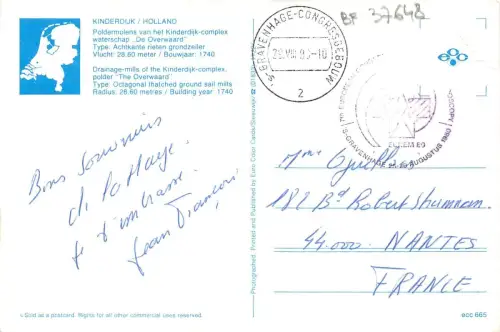 KINDERDIJK / HOLLAND
Poldermolens van het Kinderdijk-complex
waterschap „De Overwaard"
Type: Achtkante rieten grondzeiler
Vlucht: 28.60 meter / Bouwjaar: 1740
Drainage-mills of the Kinderdijk-complex,
polder "The Overwaard"
Type: Octagonal thatched ground sail mills
Radius: 28.60 metres / Building year 1740
BF 37648
'S-GRAVENHAGE-CONGRESGEBOUW
2
'S-GRAVENHAGE AUGUSTUS
Bons Souvenirs
de la Haye.
Je t'embrasse.
Jean François
Mme
182 Bd Robert Shumman.
44.000. NANTES
FRANCE
Photographed, Printed and Published by
Sold as a postcard. Rights for all other commercial uses reserved.
ecc 665